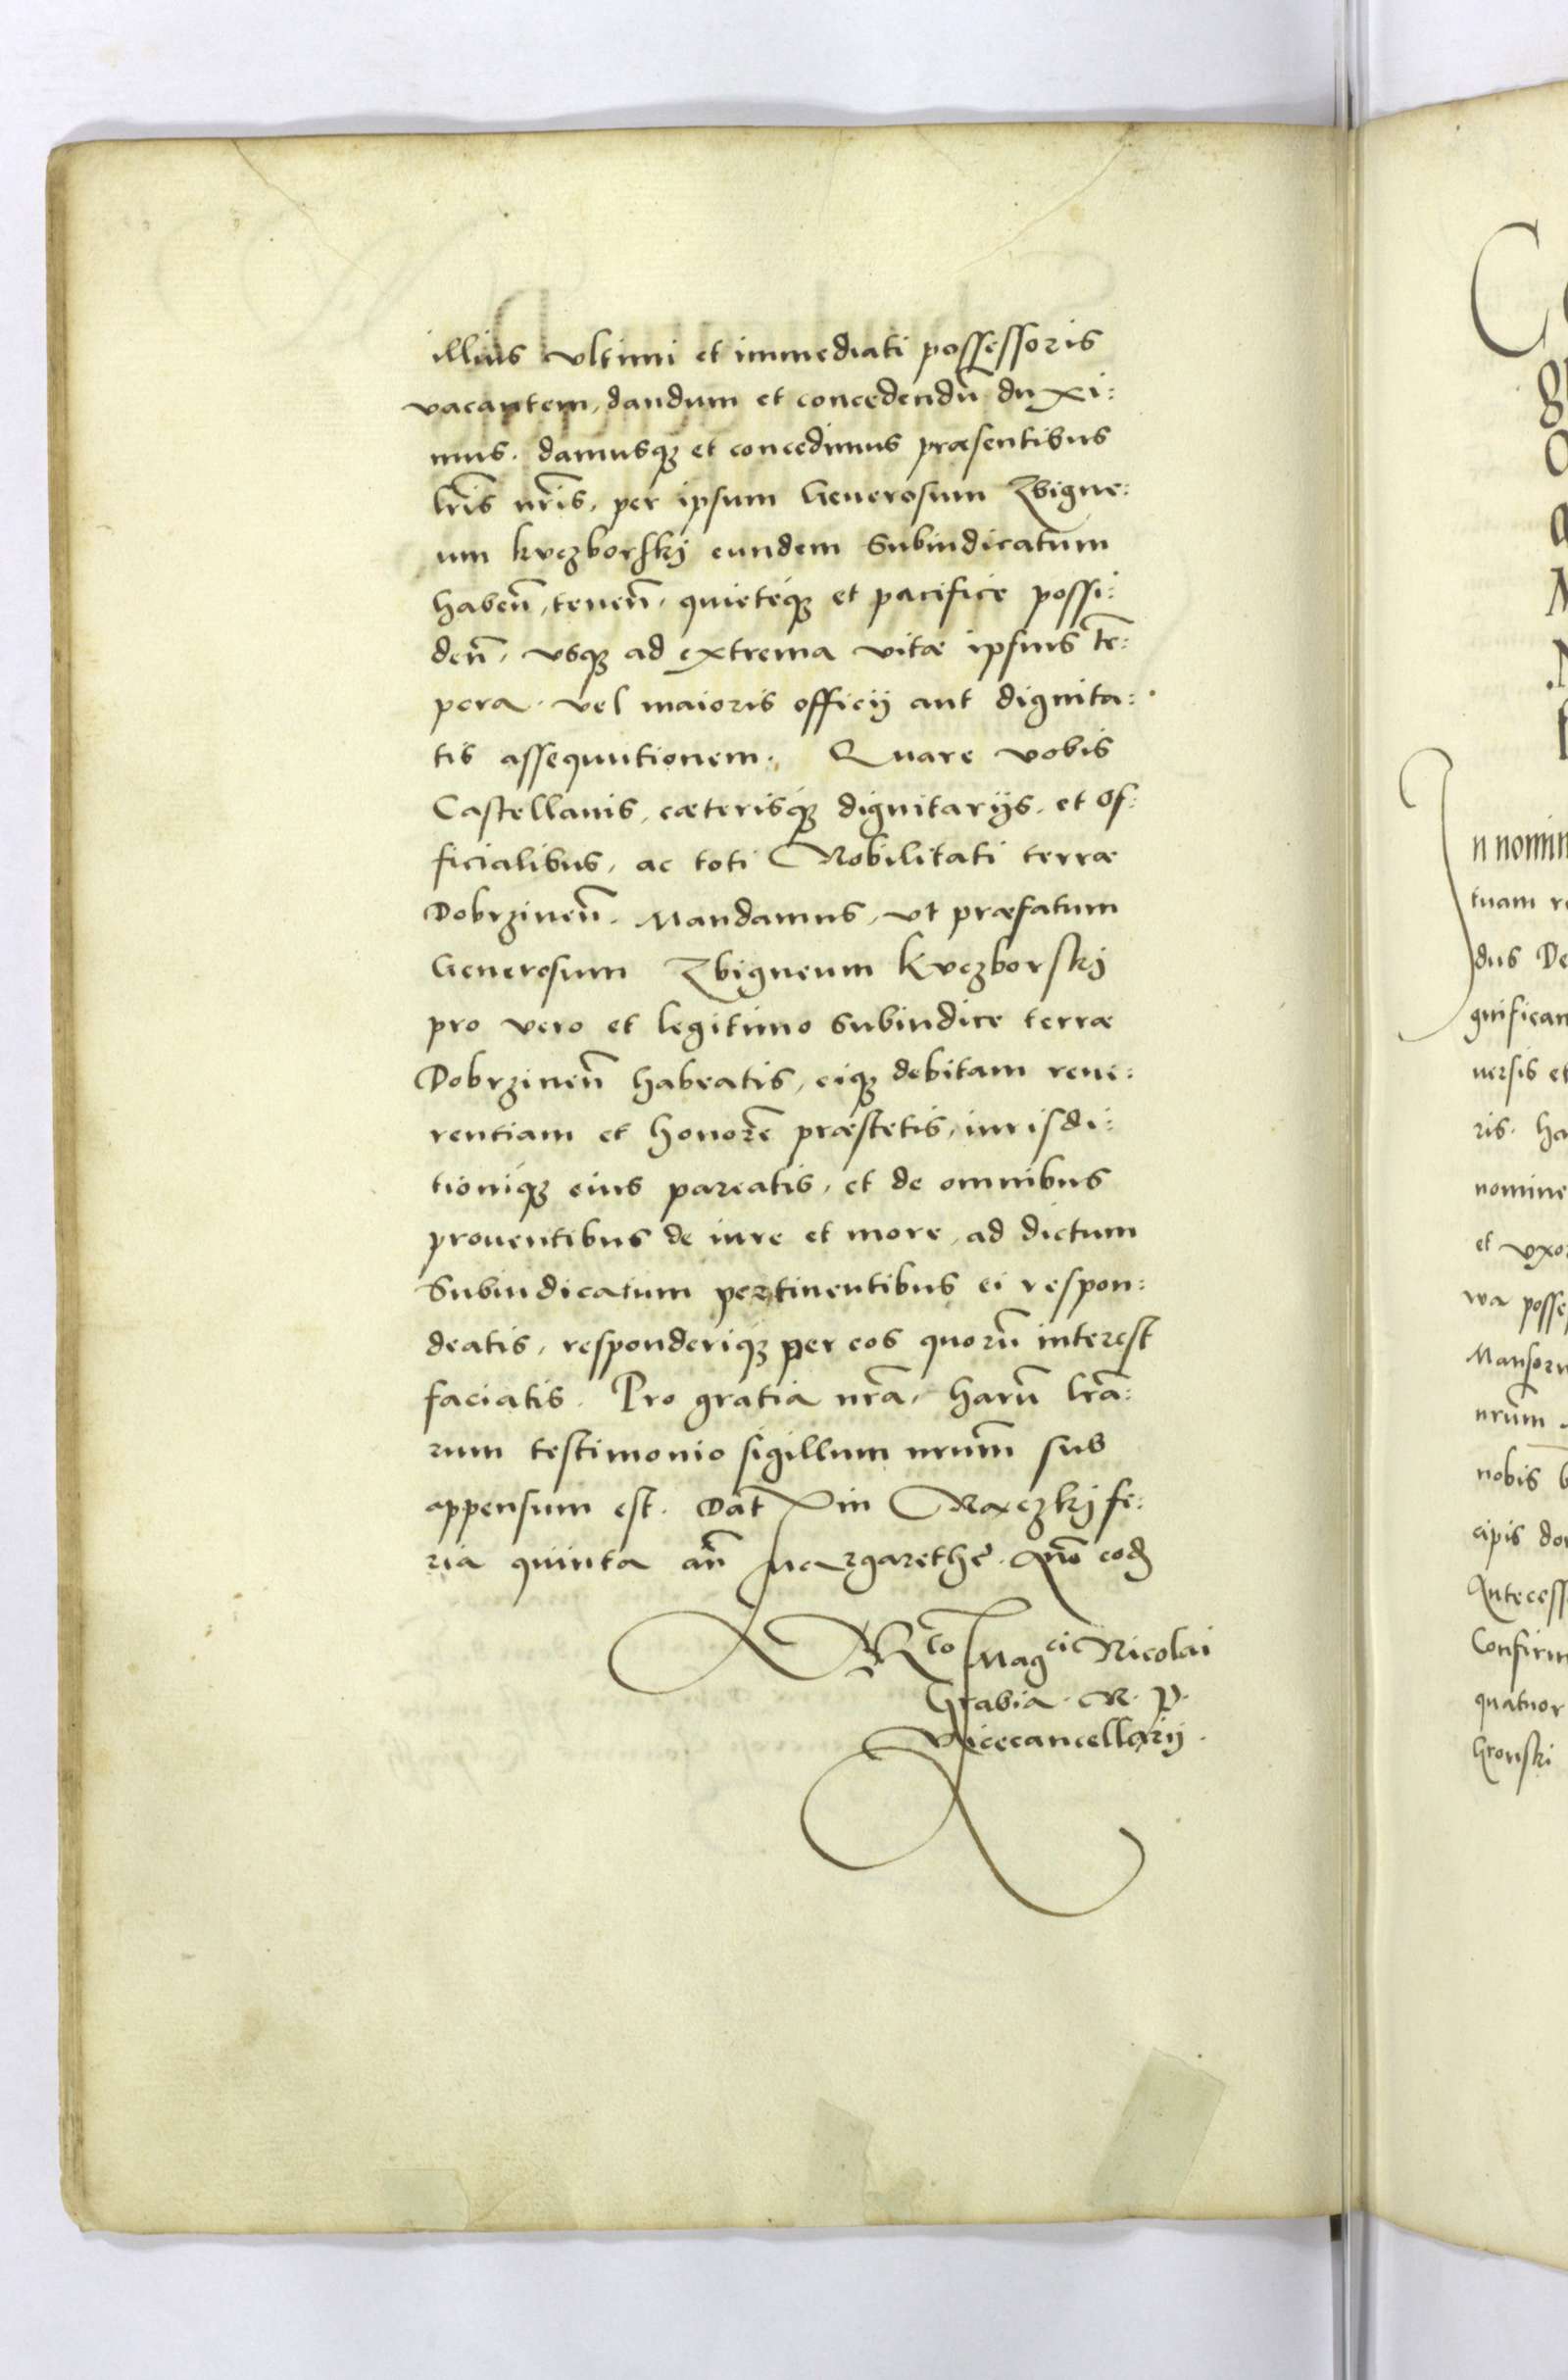 illius vltimi et immediati possessoris
vacantem, dandum et concedendū duxi:
mus. damusqȝ et concedimus præsentibus
lr̄is nr̄is, per ipsum Generosum Zbigne:
um kvczborskj eundem Subiudicatum
haben̄, tenen̄, quieteqȝ et pacifice possi:
den̄, vsqȝ ad extrema vitæ ipsius tē:
pera. vel maioris officij aut dignita:
tis assequutionem. Quare vobis
Castellanis, cæterisqȝ dignitarijs. et of:
ficialibus, ac toti Nobilitati terræ
Dobrzinen̄. Mandamus, vt præfatum
Generosum Zbigneum Kvczborskj
pro vero et legitimo Subiudice terræ
Dobrzinen̄ habeatis, eiqȝ debitam reue:
rentiam et honorē præstetis, iurisdi:
tioniqȝ eius pareatis, et de omnibus
prouentibus de iure et more, ad dictum
Subiudicatum pertinentibus ei respon:
deatis, responderiqȝ per eos quorū interest
faciatis. Pro gratia nr̄a, harū lr̄a:
rum testimonio sigillum nrūm sub
appensum est. Dat̄ in fe:
ria quinta an̄ Margarethę. Anō eod
Rto Magci Nicolai
Grabia. R. P.
Vicecancellarij.
n nomin
tuam r
dus De
gnifican
uersis et
ris. ha
nomine
et vxor
wa posse
Mansoru
nrūm
nobis
cipis do
Antecess
Confirm
quatuor
Gronski